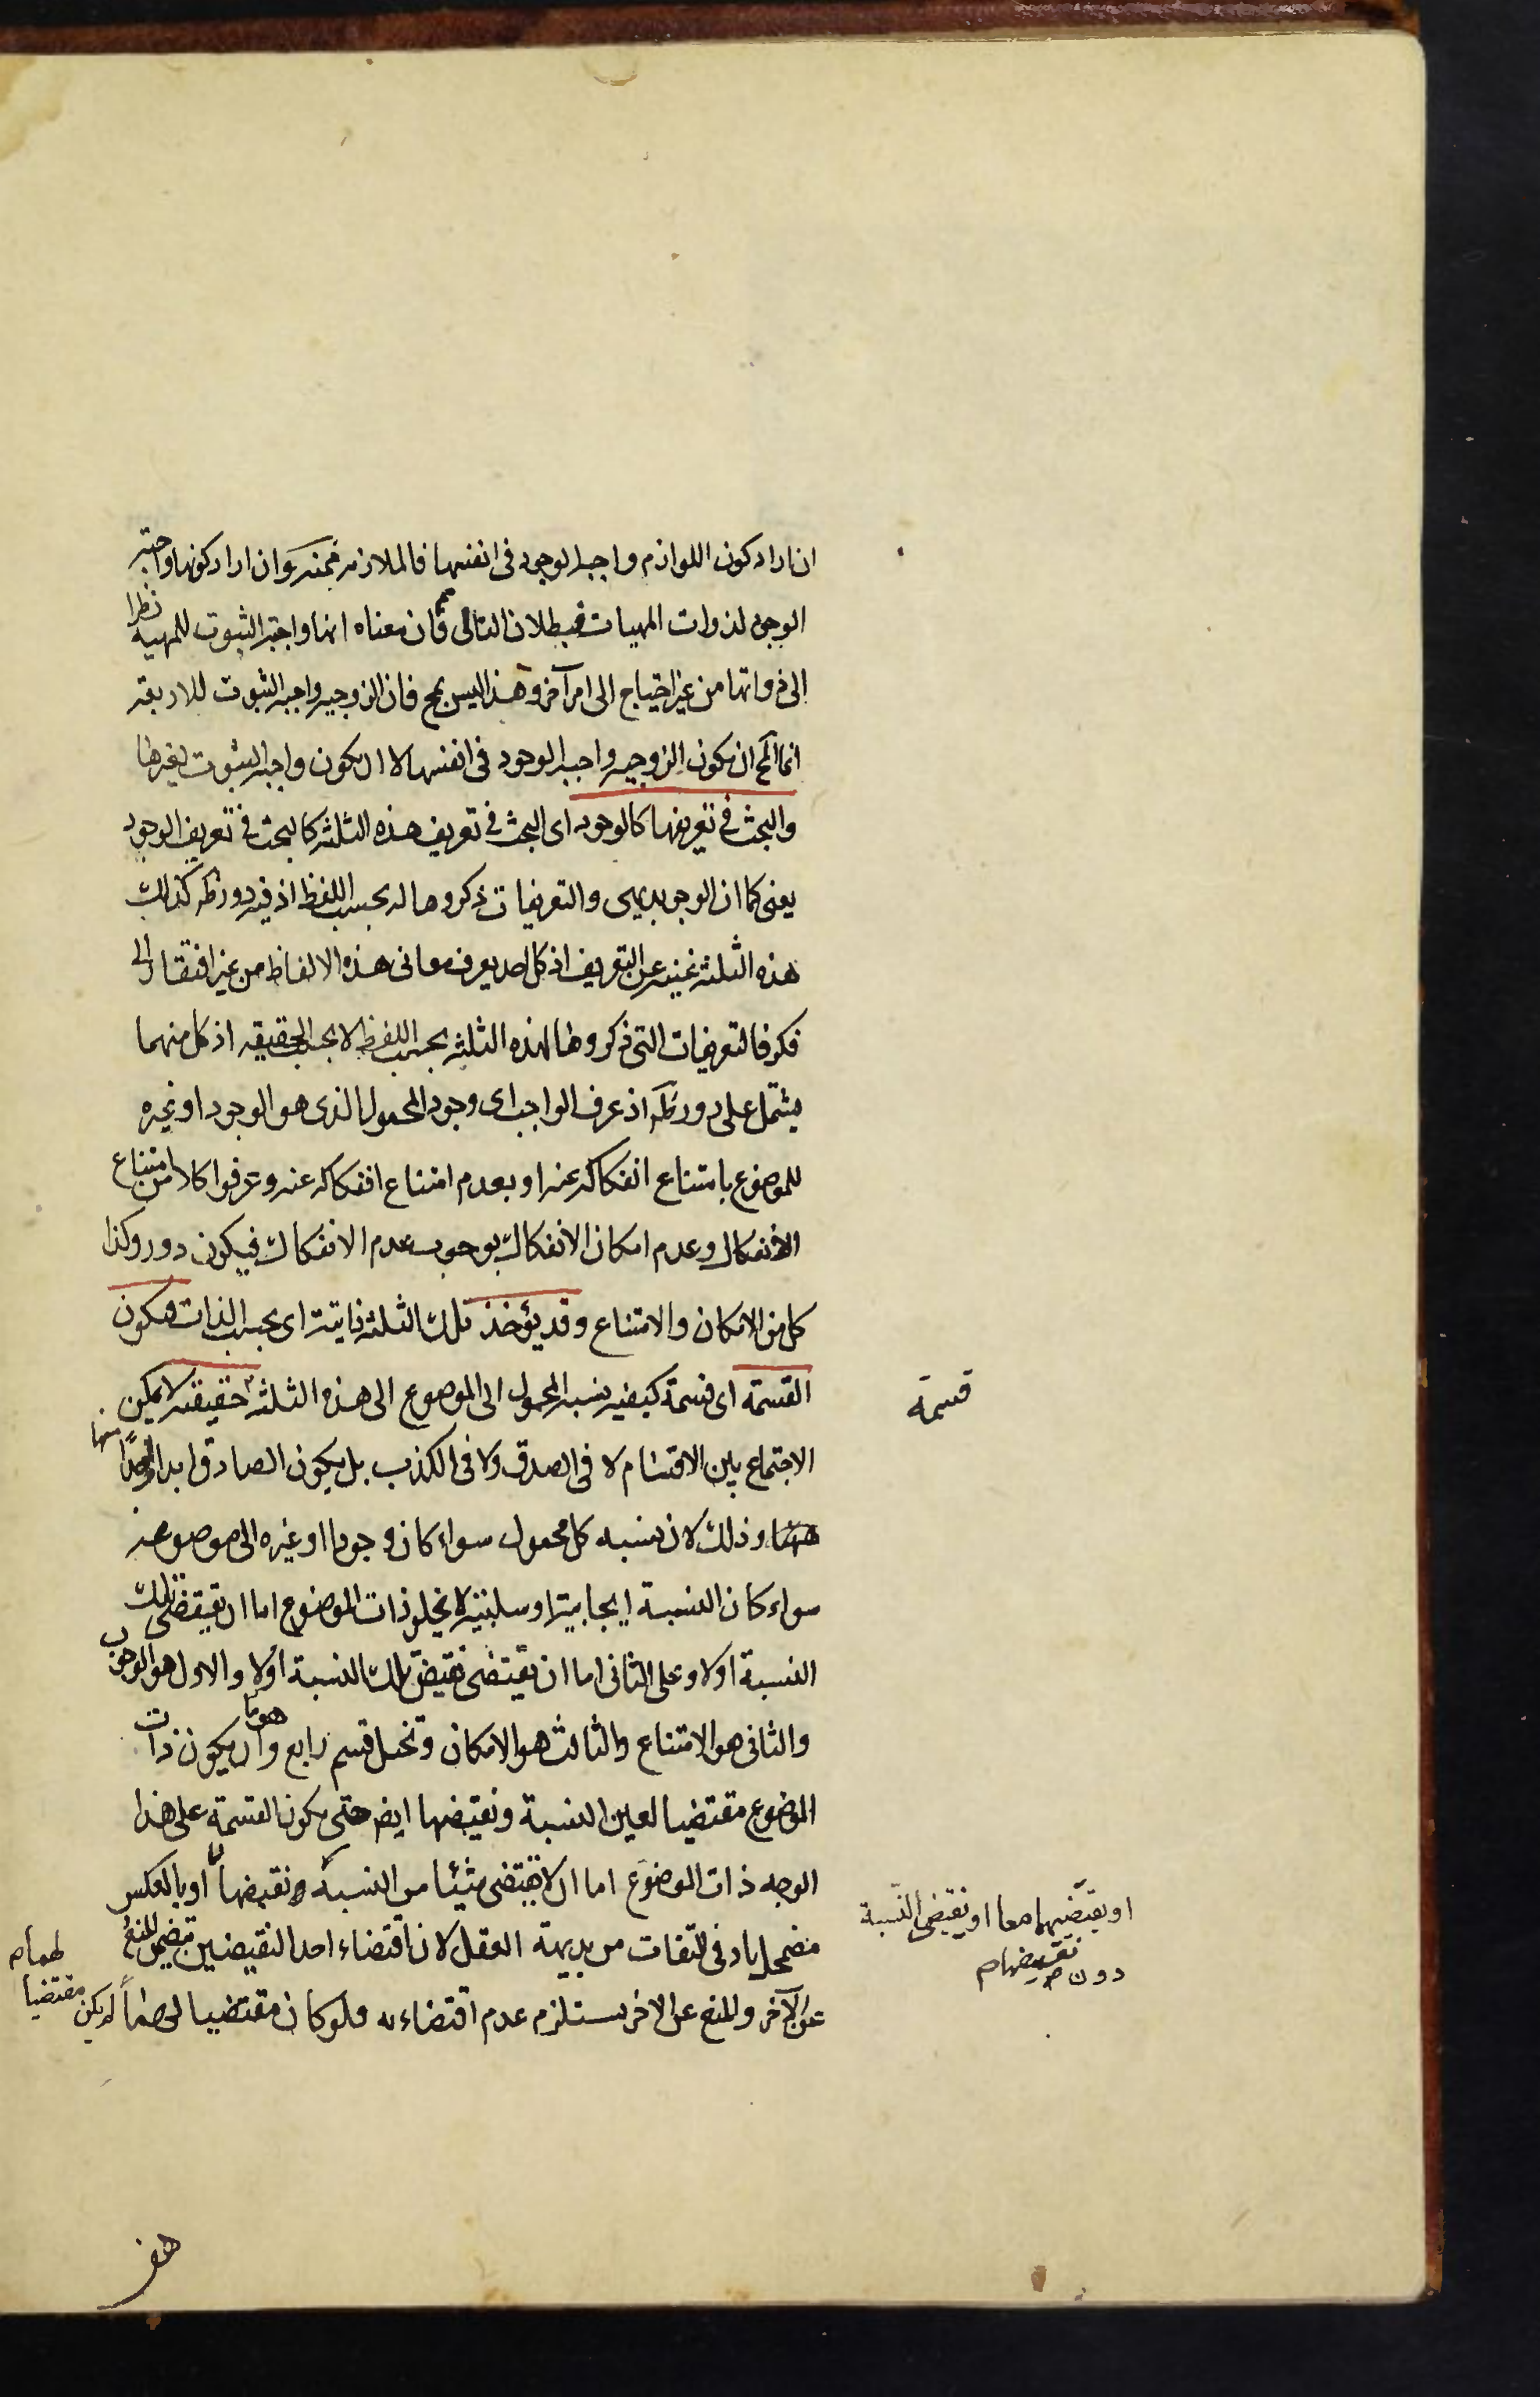 ان اراد كون اللوازم واجبة الوجود فى انفسها فالملازمة ممنوعة وان اراد كونها واجبة
الوجود لذوات المهيات فبطلان التالى مم فان معناه انها واجبة الثبوت للمهية نظرا
الى ذواتها من غير احتياج الى امر آخر وهذا ليس بمح فان الزوجية واجبة الثبوت للاربعة
انما المح ان يكون الزوجية واجبة الوجود فى انفسها لا ان يكون واجبة الثبوت لغيرها
والبحث فى تعريفها كالوجود اى البحث فى تعريف هذه الثلثة كالبحث فى تعريف الوجود
يعنى كما ان الوجود بديهى والتعريفات ذكروها له بحسب اللفظ اذ فيه دور ظ كذلك
هذه الثلثة غنية عن التعريف اذ كل احد يعرف معانى هذه الالفاظ من غير افتقار الى
فكر فالتعريفات التى ذكروها لهذه الثلثة بحسب اللفظ لا بحسب الحقيقة اذ كل منهما
يشتمل على دور ظ اذ عرف الواجب اى وجود المحمول الذى هو الوجود او غيره
للموضوع بامتناع انفكاكه عنه او بعدم امتناع انفكاكه عنه وعرفوا كلا من امتناع
الانفكاك وعدم امكان الانفكاك بوجوب عدم الانفكاك فيكون دور وكذا
كل من الامكان والامتناع وقد يؤخذ تلك الثلثة ذاتية اى بحسب الذات فيكون
القسمة اى قسمة كيفية نسبة المحمول الى الموضوع الى هذه الثلثة حقيقة لا يمكن
قسمة
الاجتماع بين الاقسام لا فى الصدق ولا فى الكذب بل يكون الصادق ابدا واحدا منها
وذلك لان نسبة كل محمول سواء كان وجودا او غيره الى موضوعه
سواء كان النسبة ايجابية او سلبية لا يخلو ذات الموضوع اما ان يقتضى تلك
النسبة اولا وعلى الثانى اما ان يقتضى نقيض تلك النسبة اولا والاول هو الوجوب
والثانى هو الامتناع والثالث هو الامكان وتخيل قسم رابع وهو ان يكون ذات
الموضوع مقتضيا لعين النسبة ونقيضها ايضا حتى يكون القسمة على هذا
الوجه ذات الموضوع اما ان لا يقتضى شيئا من النسبة ونقيضها او بالعكس
او يقتضيهما معا او يقتضى النسبة
دون نقيضها
مضمحل بادنى التفات من بديهة العقل لان اقتضاء احد النقيضين يتضمن المنع
عن الآخر والمنع عن الاخر يستلزم عدم اقتضاءه فلو كان مقتضيا لهما لم يكن مقتضيا
لهما
هف